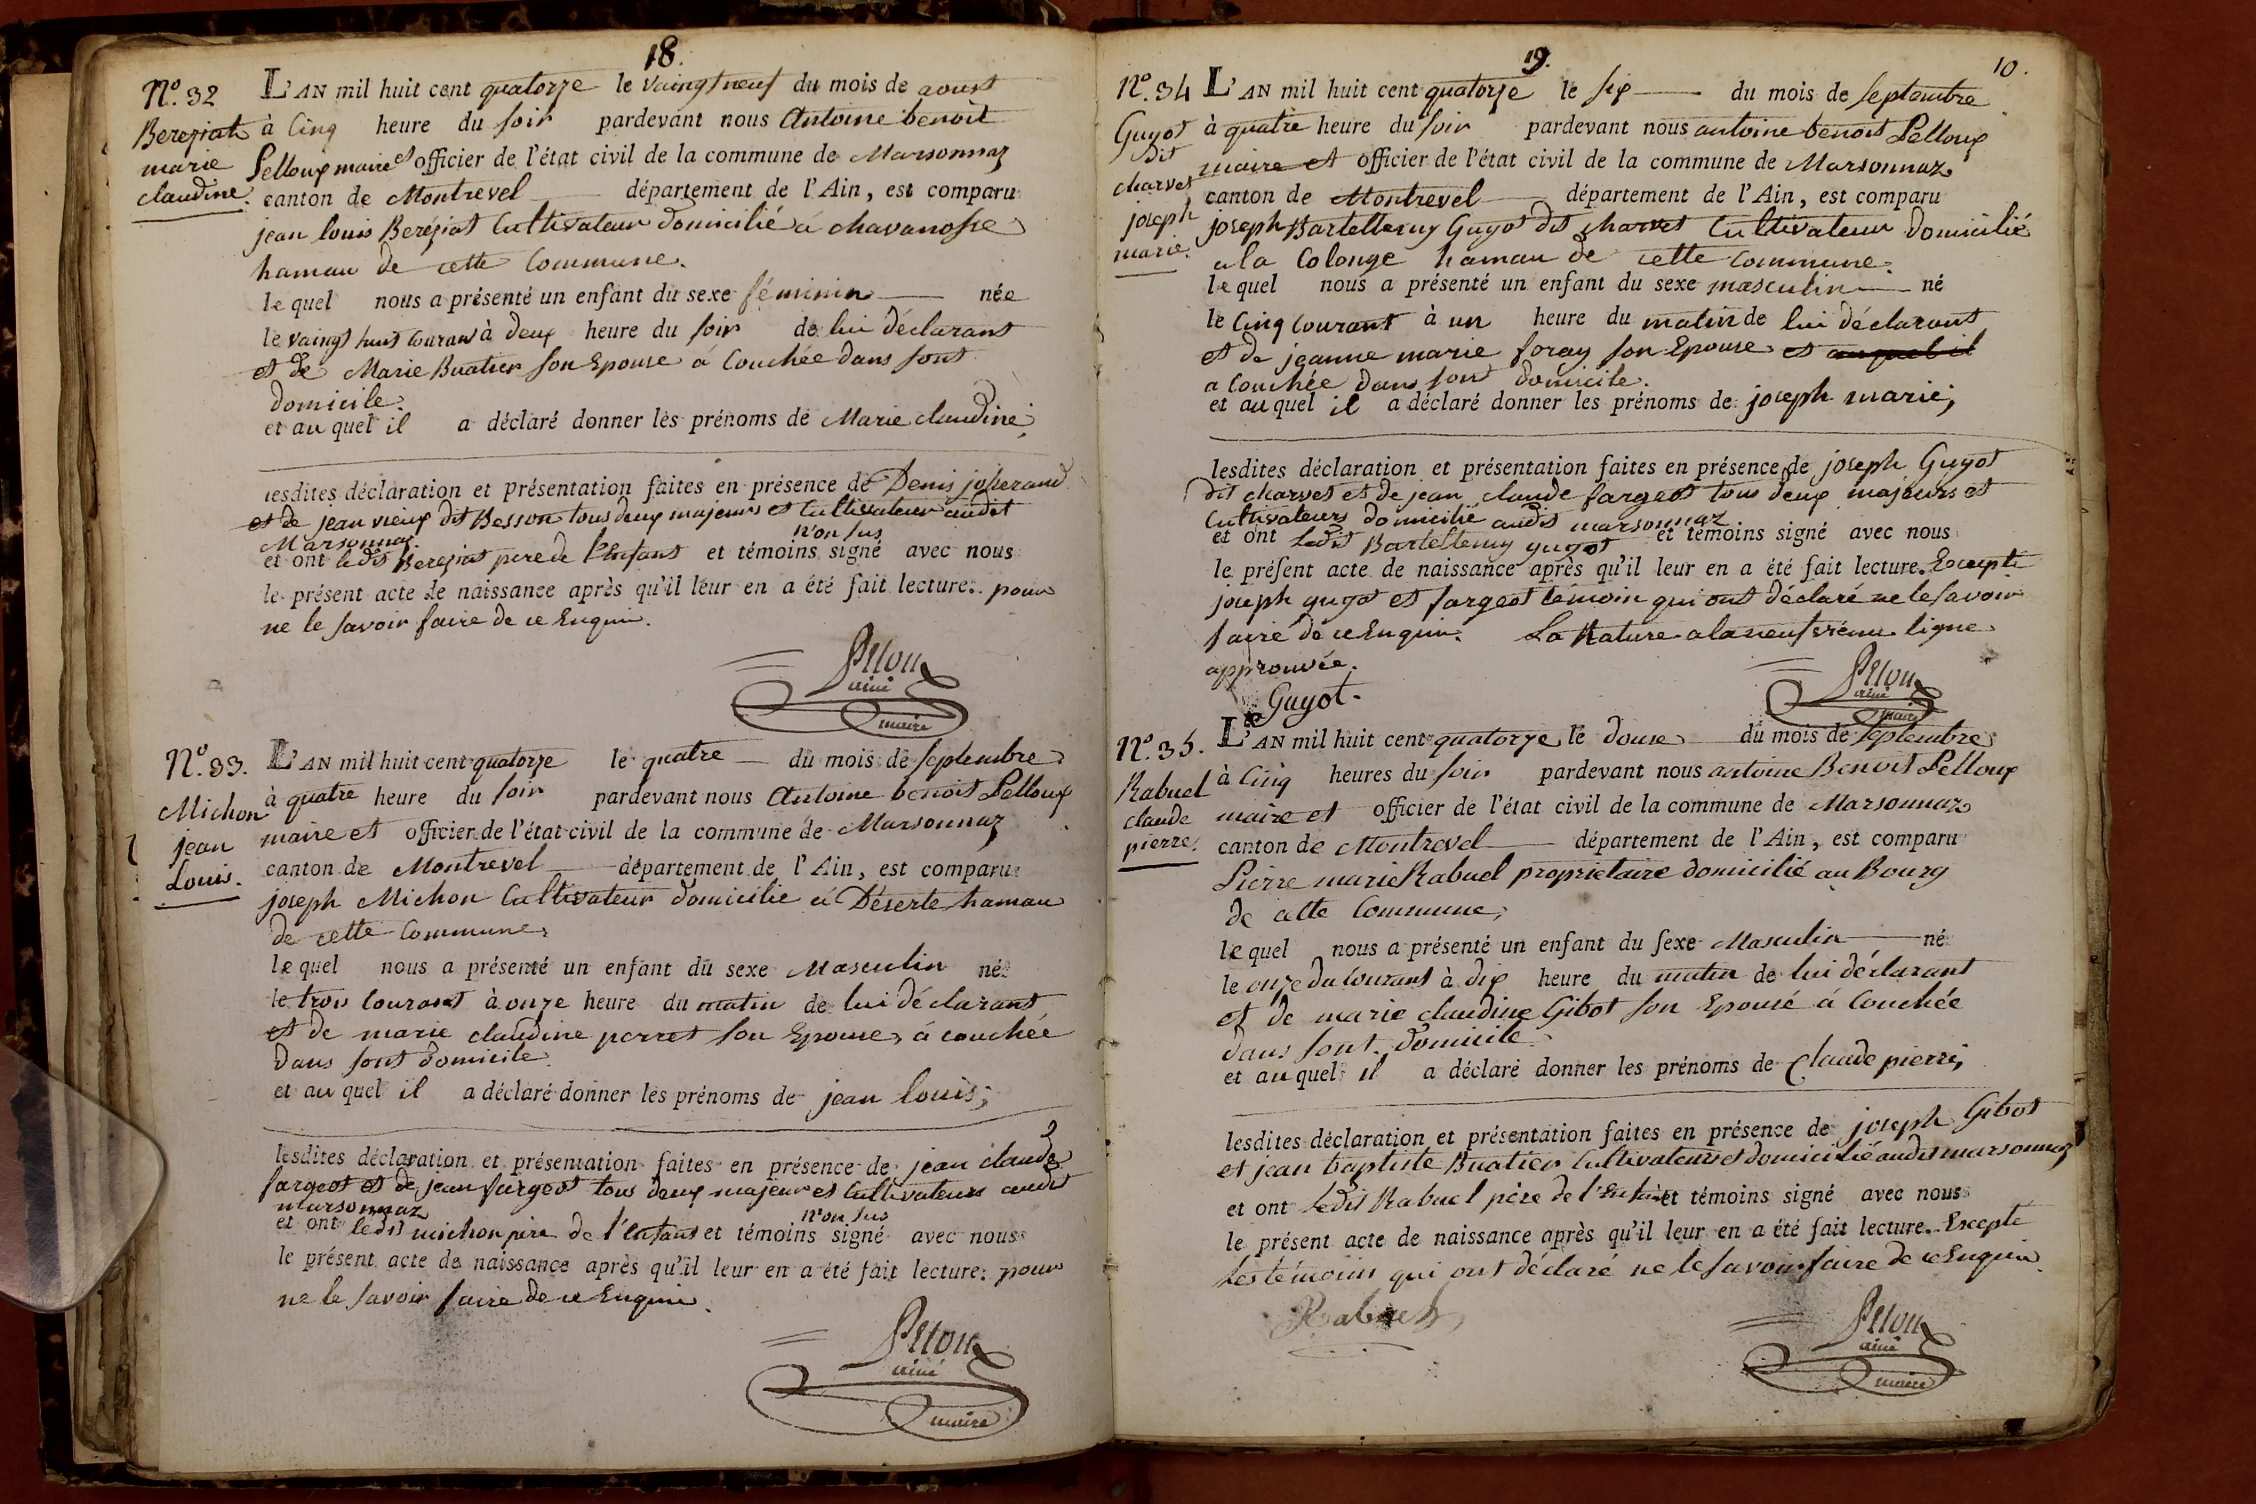 18.
N.° 32
Bereziat
marie
claudine.
L'AN mil huit cent quatorze le vaingt neuf du mois de aoust
à Cinq heure du soir pardevant nous Antoine benoit
Pelloux maire et officier de l'état civil de la commune de Marsonnaz
canton de Montrevel département de l'Ain, est comparu
jean louis Bereziat Cultivateur domicilié à chavanosse
hamau de cette Commune.
lequel nous a présenté un enfant du sexe féminin née
le vaingt huit Courant à deux heure du soir de lui déclarant
et de Marie Buatier son Epouse a Couchée dans sont
domicile.
et auquel il a déclaré donner les prénoms de Marie claudine;
lesdites déclaration et présentation faites en présence de Denis josserand
et de jean vieux dit Besson tous deux majeurs et Cultivateur audit
Marsonnaz n'on sus
et ont ledit Bereziat pere de l'Enfant et témoins signé avec nous
le présent acte de naissance après qu'il leur en a été fait lecture. pour
ne le savoir faire de ce Enquir.
Pelloux
ainé
maire
N.° 33.
Michon
jean
Louis.
L'AN mil huit cent quatorze le quatre du mois de septembre
à quatre heure du soir pardevant nous Antoine benoit Pelloux
maire et officier de l'état civil de la commune de Marsonnaz
canton de Montrevel département de l'Ain, est comparu
joseph Michon Cultivateur domicilié à Déserte hamau
de cette Commune,
lequel nous a présenté un enfant du sexe Masculin né
le trois Courant à onze heure du matin de lui déclarant
et de marie claudine perret son Epouse, à couchée
dans sont domicile
et auquel il a déclaré donner les prénoms de jean louis;
lesdites déclaration et présentation faites en présence de jean claude
fargeot et de jean fargeot tous deux majeur et Cultivateurs audit
marsonnaz n'on sus
et ont ledit michon père de l'enfant et témoins signé avec nous
le présent acte de naissance après qu'il leur en a été fait lecture: pour
ne le savoir faire de ce Enquir.
Pelloux
ainé
maire
19.
10.
N.° 34
Guyot
dit
charvet
joseph
marie.
L'AN mil huit cent quatorze le six du mois de septembre
à quatre heure du soir pardevant nous antoine benoit Pelloux
maire et officier de l'état civil de la commune de Marsonnaz
canton de Montrevel département de l'Ain, est comparu
joseph Bartellemy Guyot dit charvet Cultivateur domicilié
a la Colonge hamau de cette Commune.
lequel nous a présenté un enfant du sexe masculin né
le Cinq Courant à un heure du matin de lui déclarant
et de jeanne marie foray son Epouse et auquel il
a Couchée dans sont domicile.
et auquel il a déclaré donner les prénoms de joseph marie;
lesdites déclaration et présentation faites en présence de joseph Guyot
dit charvet et de jean claude fargeot tous deux majeurs et
Cultivateurs domicilié audit marsonnaz
et ont ledit Bartellemy guyot et témoins signé avec nous
le présent acte de naissance après qu'il leur en a été fait lecture. Excepté
joseph guyot et fargeot témoin qui ont déclaré ne le savoir
faire de ce Enquir. La Rature a la neufvième ligne
approuvée.
Guyot.
Pelloux
ainé
maire
N.° 35.
Rabuel
claude
pierre.
L'AN mil huit cent quatorze le douse du mois de septembre
à Cinq heures du soir pardevant nous antoine Benoit Pelloux
maire et officier de l'état civil de la commune de Marsonnaz
canton de Montrevel département de l'Ain, est comparu
Pierre marie Rabuel proprietaire domicilié au Bourg
de cette Commune,
lequel nous a présenté un enfant du sexe Masculin né
le onze du Courant à dix heure du matin de lui déclarant
et de marie claudine Gibot son Epousé à Couchée
dans sont domicile
et auquel il a déclaré donner les prénoms de Claude pierre,
lesdites déclaration et présentation faites en présence de joseph Gibot
et jean baptiste Buatier Cultivateurs et domicilié audit marsonnaz
et ont ledit Rabuel père de l'Enfant et témoins signé avec nous
le présent acte de naissance après qu'il leur en a été fait lecture. Excepte
Les témoins qui ont déclaré ne le savoir faire de ce Enquir
Rabuel
Pelloux
ainé
maire